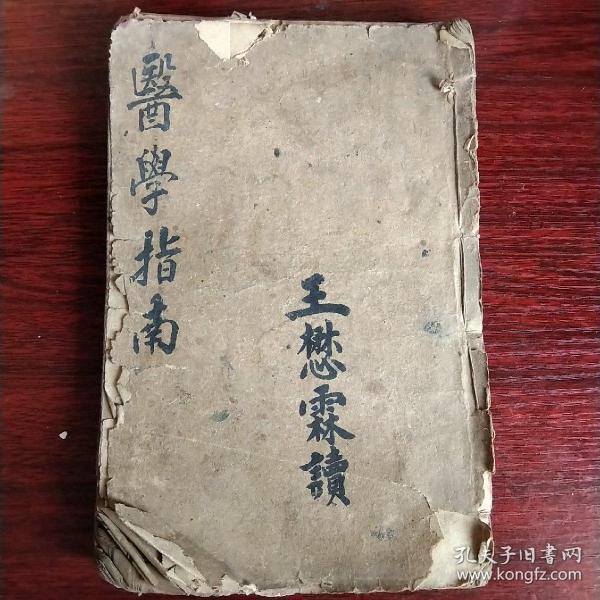 醫學指南
王懋霖讀
孔夫子旧书网
www.kongfz.com